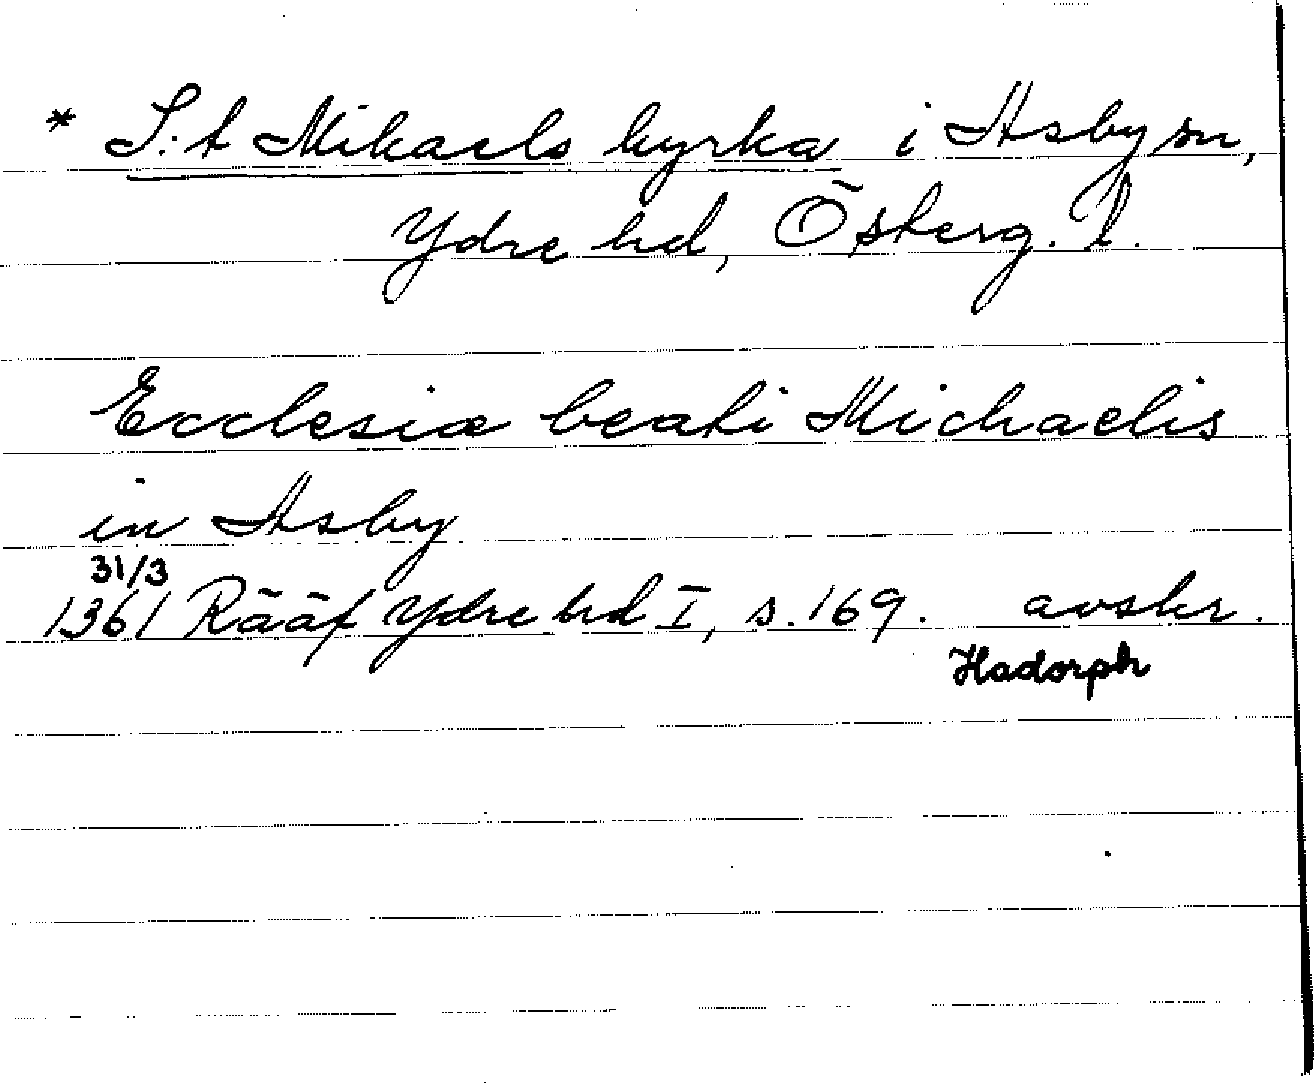 * S:t Mikaels kyrka i Asby sn,
Ydre hd, Österg. l.
Ecclesiæ beati Michaelis
in Asby
31/3
1361 Rääf Ydre hd I, s. 169. avskr.
Hadorph